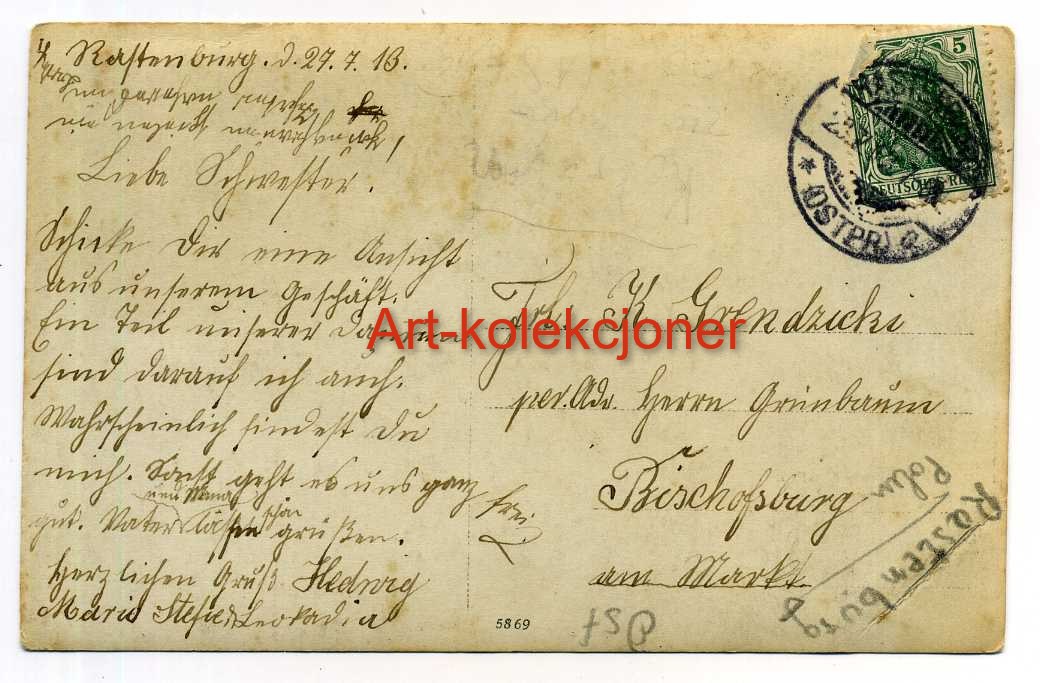 Rastenburg. d. 27.7.13.
Liebe Schwester.
Schicke Dir eine Ansicht
aus unserem Geschäft.
Ein Teil unserer Damen
sind darauf ich auch.
Wahrscheinlich findest Du
mich. Sonst geht es uns ganz
und Mama
gut. Vater lassen schön grüßen.
Herzlichen Gruß Hedwig
Marie Leokadia
frei
5
DEUTSCHES REICH
OSTPR.
Frl. K. Grendzicki
per. Adr. Herrn Grünbaum
Bischofsburg
am Markt.
Polen
Rastenburg
Ost
5869
Art-kolekcjoner